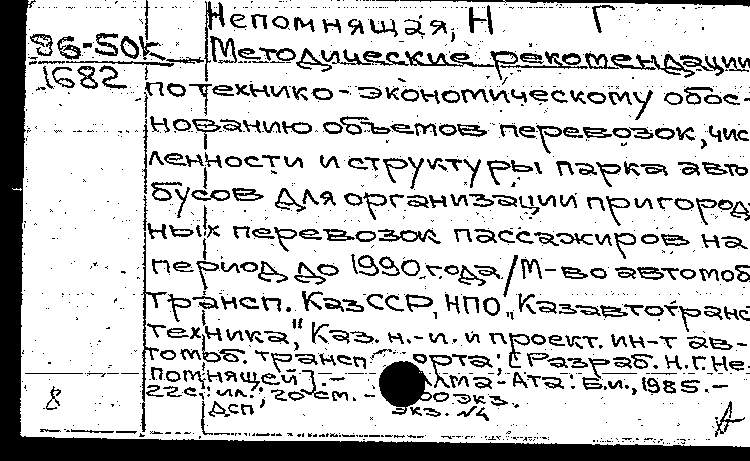 Непомнящая, Н Г
86-50к
Методические рекомендации
1682
по технико-экономическому обос-
нованию объемов перевозок, чис
ленности и структуры парка авто
бусов для организации пригород
ных перевозок пассажиров на
период до 1990 года / М-во автомоб
трансп. КазССР, НПО „Казавтотранс
техника", Каз. н.-и. и проект. ин-т ав-
томоб. трансп орта; [Разраб. Н.Г. Не
помнящей]. - Алма-Ата: Б.и., 1985. -
8
22с.: ил.; 20 см. - 00 экз.
ДСП экз. №4